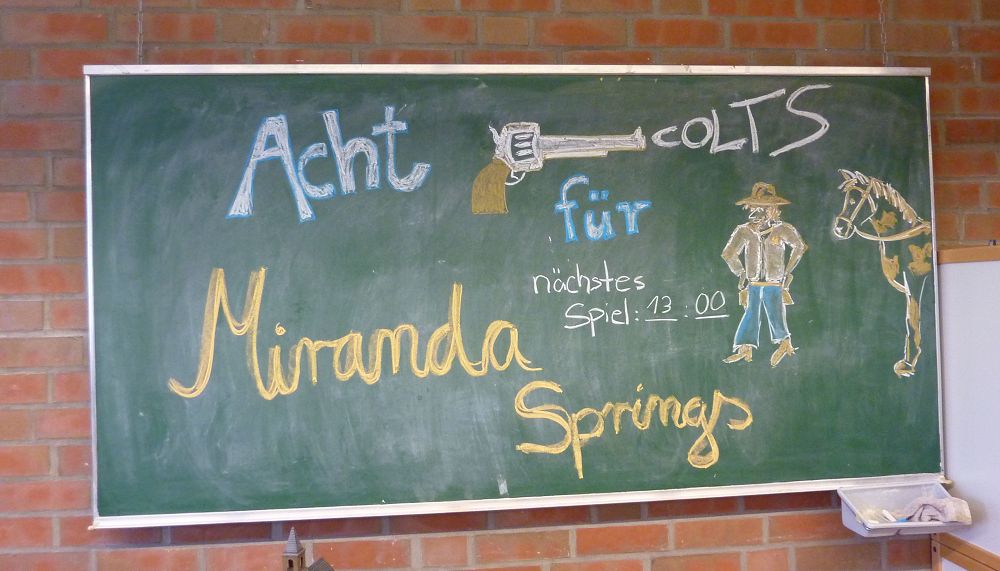 Acht COLTS
für
Miranda
Springs
nächstes
Spiel: 13:00